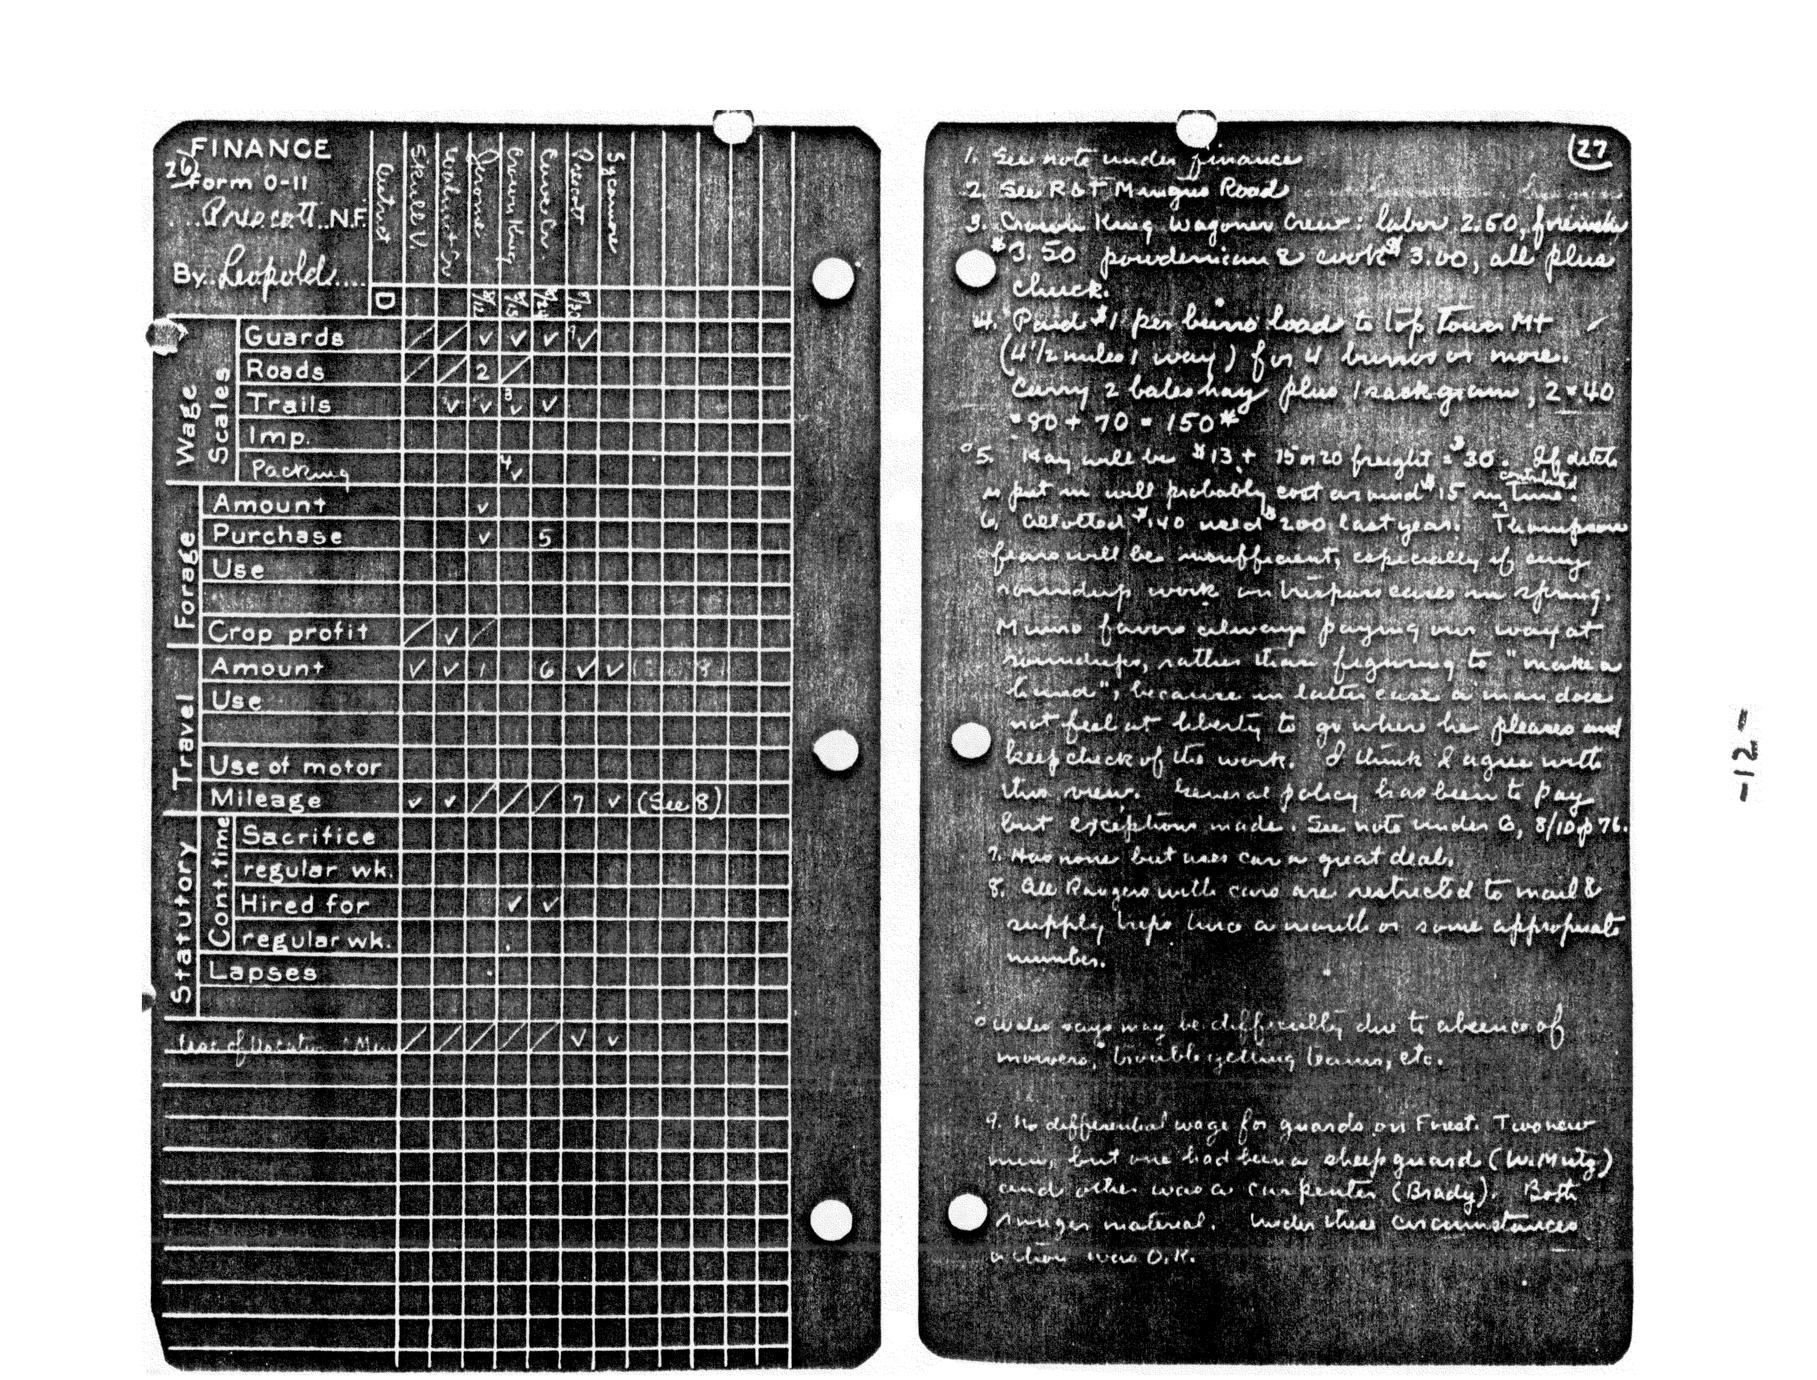 FINANCE
26
Form O-11
Prescott N.F.
By Leopold
District
Skull V.
Walnut Cr
Jerome
Crown King
Curve Cr.
Prescott
Sycamore
D
Wage Scales
Guards ✓ ✓ ✓ ✓
Roads 2
Trails ✓ ✓ 3 ✓ ✓
Imp.
Packing 4 ✓
Forage
Amount ✓
Purchase ✓ 5
Use
Crop profit ✓
Travel
Amount ✓ ✓ 1 6 ✓ ✓ 8
Use
Use of motor
Mileage ✓ ✓ 7 ✓ (See 8)
Statutory
Cont. time
Sacrifice
regular wk.
Hired for ✓ ✓
regular wk.
Lapses
Use of ✓ ✓
27
1. See note under finance
2. See R & T Mingus Road
3. Crown King wagoner crew: labor 2.50, foreman
$3.50 powderman & cook $3.00, all plus
chuck.
4. Paid $1 per burro load to top Tower Mt
(4 1/2 miles 1 way) for 4 burros or more.
Carry 2 bales hay plus 1 sack grain, 2 x 40
= 80 + 70 = 150#
5. Hay will be $13 + 15 or 20 freight = $30. If ditch
is put in will probably cost around $15 in contributed time.
6. Allotted $140 used $200 last year. Thompson
fears will be insufficient, especially if any
roundup work on trespass cases in spring.
Munro favors always paying our way at
roundups, rather than figuring to "make a
hand", because in latter case a man does
not feel at liberty to go where he pleases and
keep check of the work. I think I agree with
this view. General policy has been to pay
but exceptions made. See note under G, 8/10 p 76.
7. Has none but uses car a great deal.
8. All Rangers with cars are restricted to mail &
supply trips twice a month or some appropriate
number.
Wales says may be difficulty due to absence of
mowers, trouble getting teams, etc.
9. No differential wage for guards on Forest. Two new
men, but one had been a sheep guard (W. Mutz)
and other was a carpenter (Brady). Both
ranger material. Under these circumstances
action was O.K.
-12-